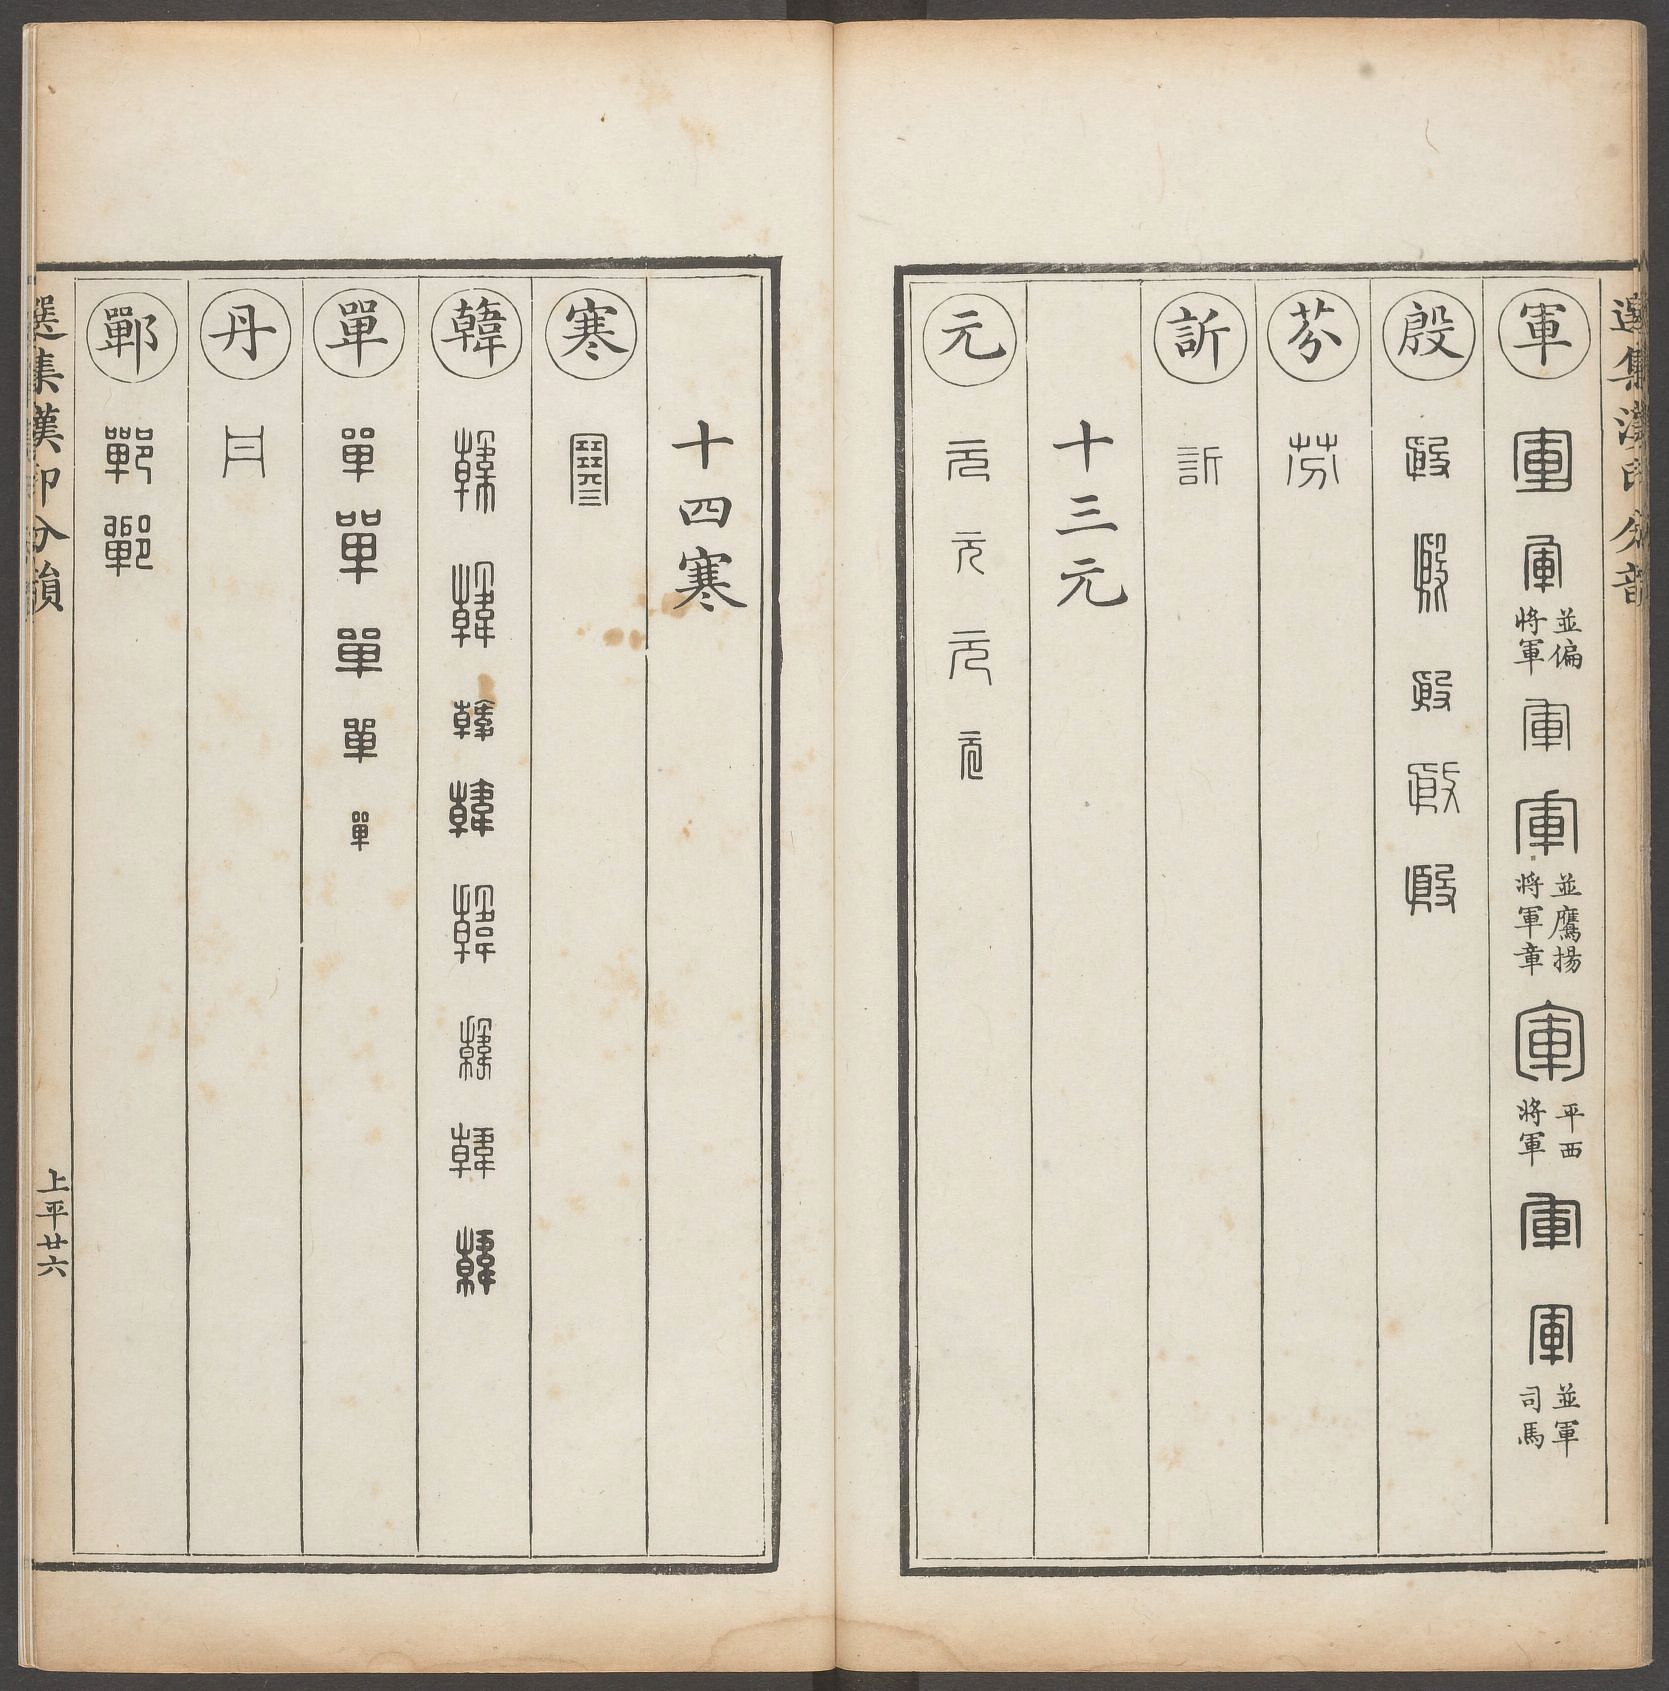 選集漢印分韻
軍 軍 軍 並偏將軍 軍 軍 並鷹揚將軍章 軍 平西將軍 軍 軍 並軍司馬
殷 殷 殷 殷 殷 殷
芬 芬
訢 訢
十三元
元 元 元 元 元
十四寒
寒 寒
韓 韓 韓 韓 韓 韓 韓 韓 韓
單 單 單 單 單 單
丹 丹
鄲 鄲 鄲
選集漢印分韻 上平廿六